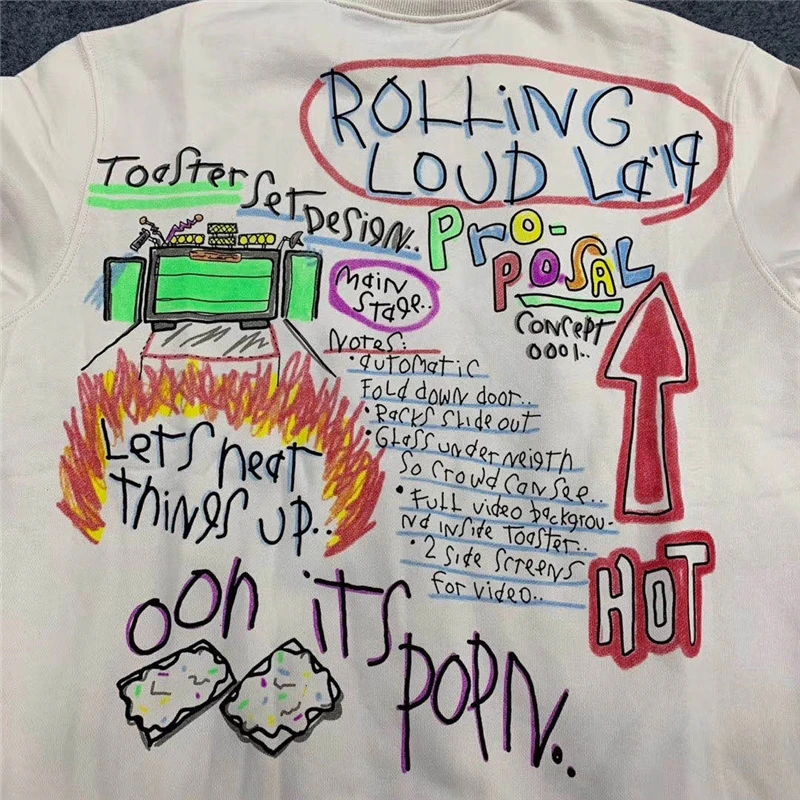 ROLLiNG
LOUD La'19
Toaster Set Design..
Pro-
POSAL
Concept
0001..
Main
Stage..
Notes:
• automatic
Fold down door..
• Racks slide out
• Glass underneigth
So Crowd Can See..
• Full video backgrou-
nd inside Toaster..
• 2 Side Screens
For video..
Lets heat
things up..
HOT
ooh its
POPN..